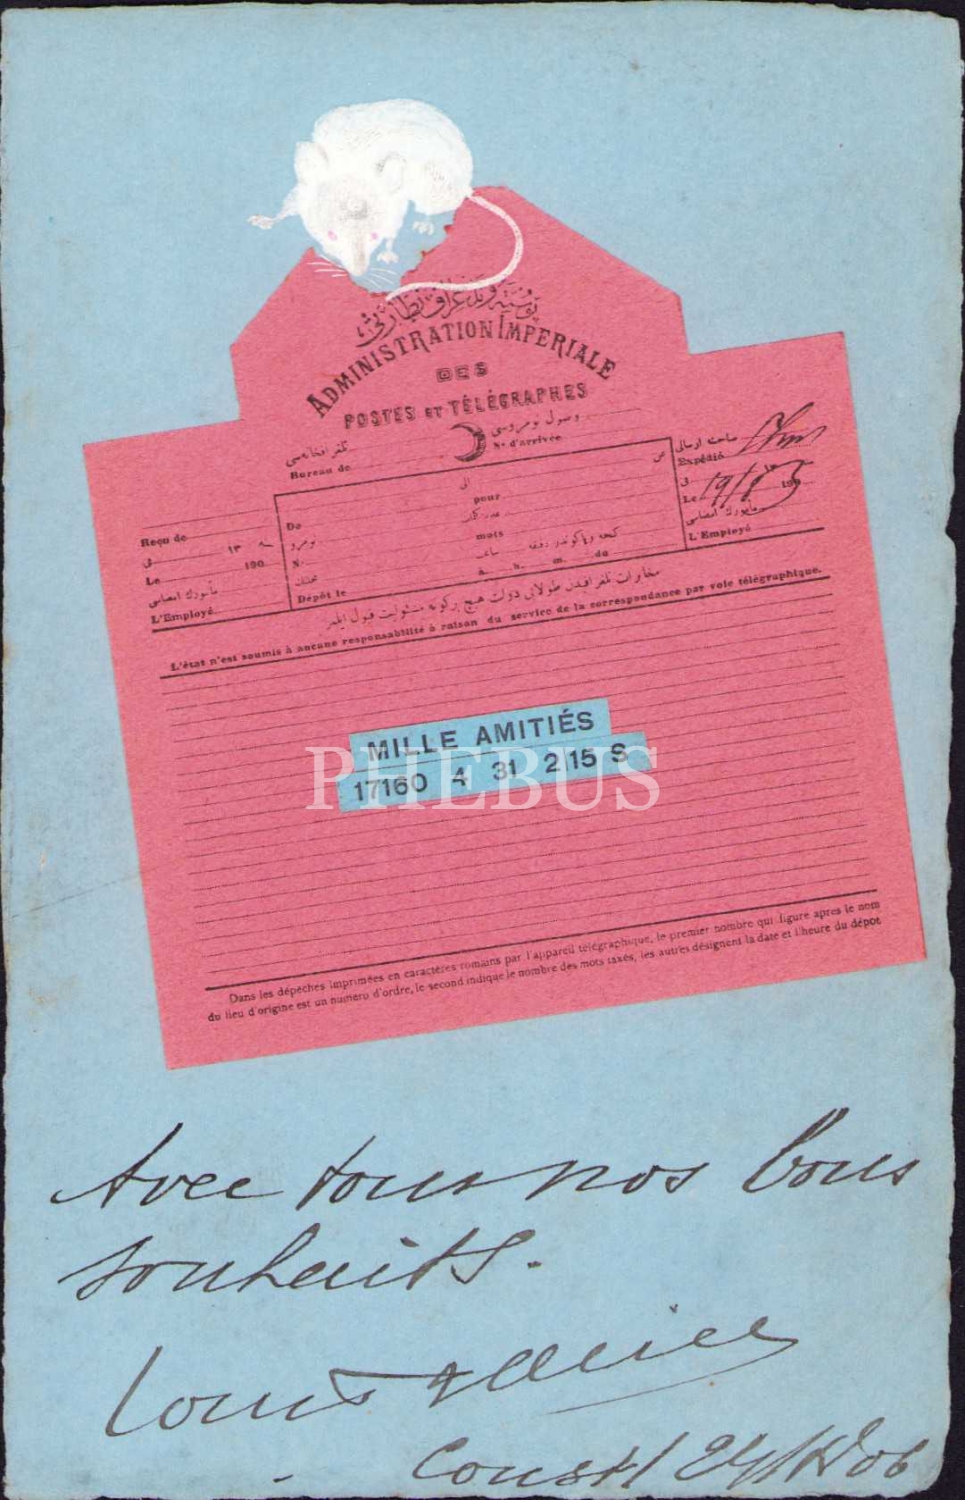 پوسته و تلغراف نظارتی
ADMINISTRATION IMPERIALE
DES
POSTES ET TÉLÉGRAPHES
تلغرافخانه‌سی
Bureau de
وصول نومروسی
No d'arrivée
ساعت ارسالی
Expédié
فی ١٣
Le 19/ 190
مأمورك امضاسی
L'Employé
Reçu de
فی ١٣
Le 190
مأمورك امضاسی
L'Employé.
الی
عن
De pour
نومرو
No mots
Dépôt le à h. m. du
مخابرات تلغرافیدن طولایی دولت هیچ برگونه مسئولیت قبول ایلمز
L'état n'est soumis à aucune responsabilité à raison du service de la correspondance par voie télégraphique.
MILLE AMITIÉS
17160 4 31 2 15 S
PHEBUS
Dans les dépêches imprimées en caractères romains par l'appareil télégraphique, le premier nombre qui figure apres le nom
du lieu d'origine est un numéro d'ordre, le second indique le nombre des mots taxés, les autres désignent la date et l'heure du dépôt
Avec tous nos bons
souhaits.
Louis
Const/ 24/ 06